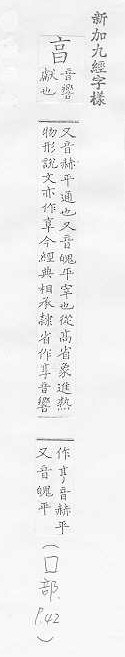 新加九經字樣
亯
音響
獻也
又音赫平通也又音魄平宰也從高省象進熱
物形說文亦作亯今經典相承隸省作享音響
作亨音赫平
又音魄平
(口部.
P.42)